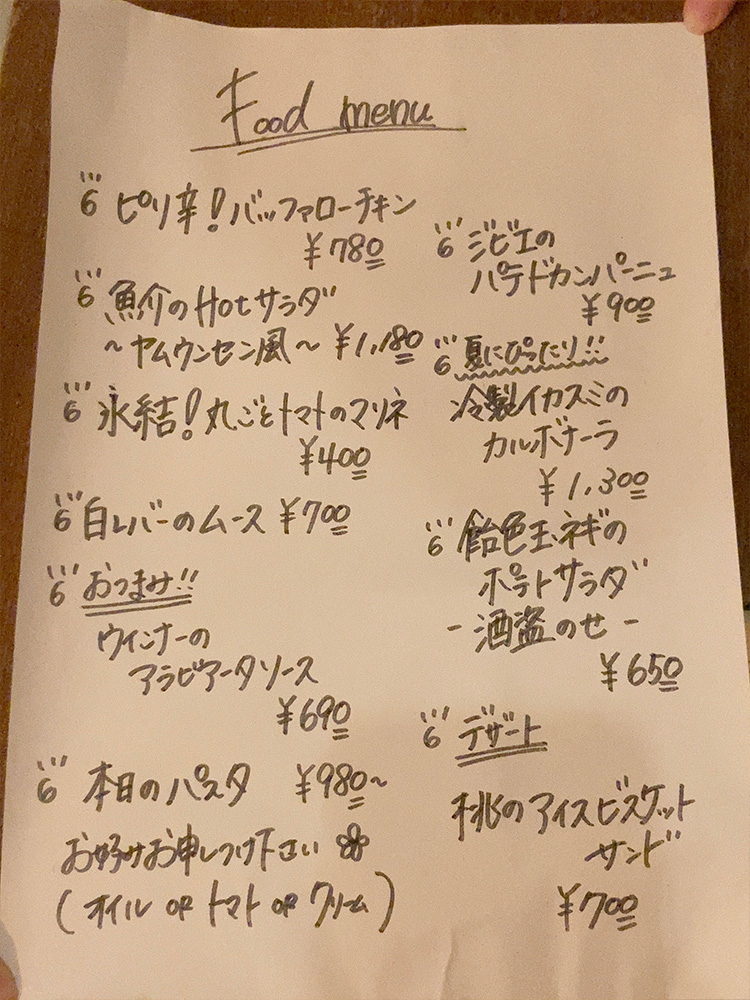 Food menu
ピリ辛!バッファローチキン
¥780
魚介のHotサラダ
~ヤムウンセン風~ ¥1,180
氷結!丸ごとトマトのマリネ
¥400
白レバーのムース ¥700
おつまみ!!
ウィンナーの
アラビアータソース
¥690
本日のパスタ ¥980~
お好みお申しつけ下さい
(オイル or トマト or クリーム)
ジビエの
パテドカンパーニュ
¥900
夏にぴったり!!
冷製イカスミの
カルボナーラ
¥1,300
飴色玉ネギの
ポテトサラダ
-酒盗のせ-
¥650
デザート
桃のアイスビスケット
サンド
¥700